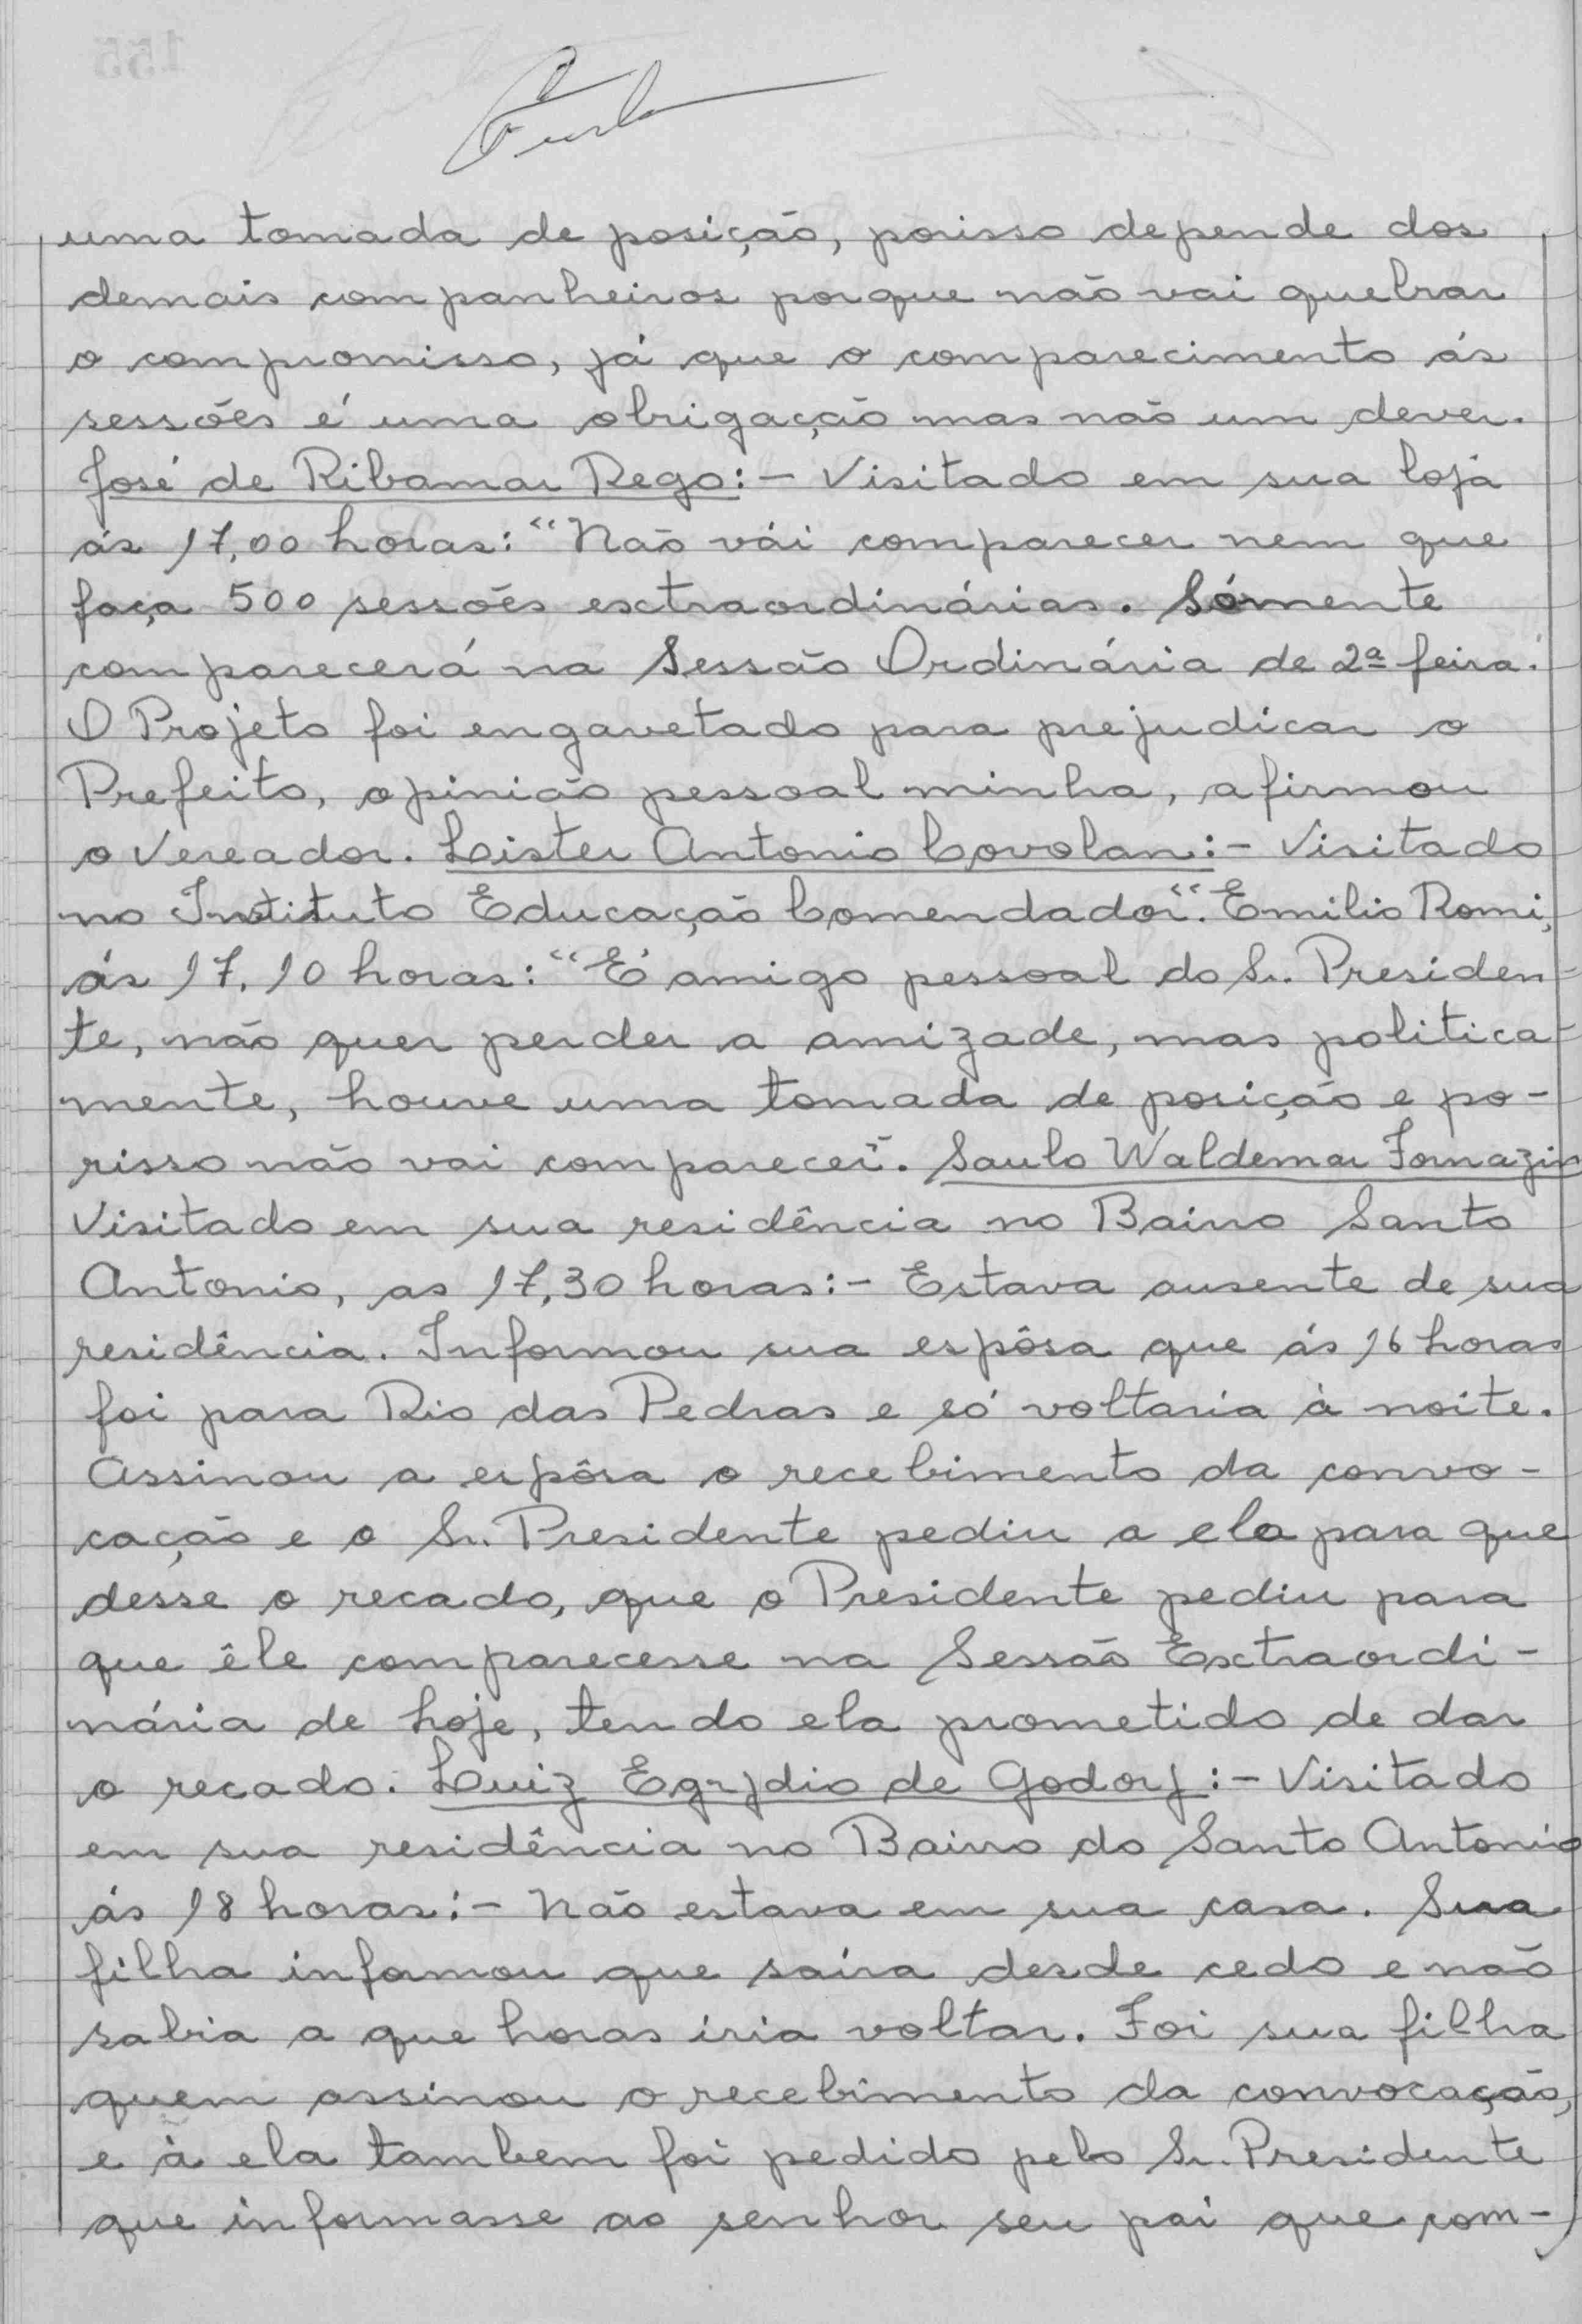 uma tomada de posição, porisso depende dos
demais companheiros porque não vai quebrar
o compromisso, já que o comparecimento ás
sessões é uma obrigação mas não um dever.
José de Ribamar Rego:- Visitado em sua loja
ás 17,00 horas: "Não vái comparecer nem que
faça 500 sessões extraordinárias. Sómente
comparecerá na Sessão Ordinária de 2ª feira.
O Projeto foi engavetado para prejudicar o
Prefeito, opinião pessoal minha, afirmou
o Vereador. Lister Antonio Covolan:- Visitado
no Instituto Educação Comendador". Emilio Romi,
ás 17,10 horas: "É amigo pessoal do Sr. Presiden-
te, não quer perder a amizade, mas politica-
mente, houve uma tomada de posição e po-
risso não vai comparecer". Saulo Waldemar Fornazin
Visitado em sua residência no Bairro Santo
Antonio, as 17,30 horas:- Estava ausente de sua
residência. Informou sua espôsa que ás 16 horas
foi para Rio das Pedras e só voltaria à noite.
Assinou a espôsa o recebimento da convo-
cação e o Sr. Presidente pediu a ela para que
desse o recado, que o Presidente pediu para
que êle comparecesse na Sessão Extraordi-
nária de hoje, tendo ela prometido de dar
o recado. Luiz Egydio de Godoy:- Visitado
em sua residência no Bairro do Santo Antonio
ás 18 horas:- Não estava em sua casa. Sua
filha informou que saíra desde cedo e não
sabia a que horas iria voltar. Foi sua filha
quem assinou o recebimento da convocação,
e à ela tambem foi pedido pelo Sr. Presidente
que informasse ao senhor seu pai que com-